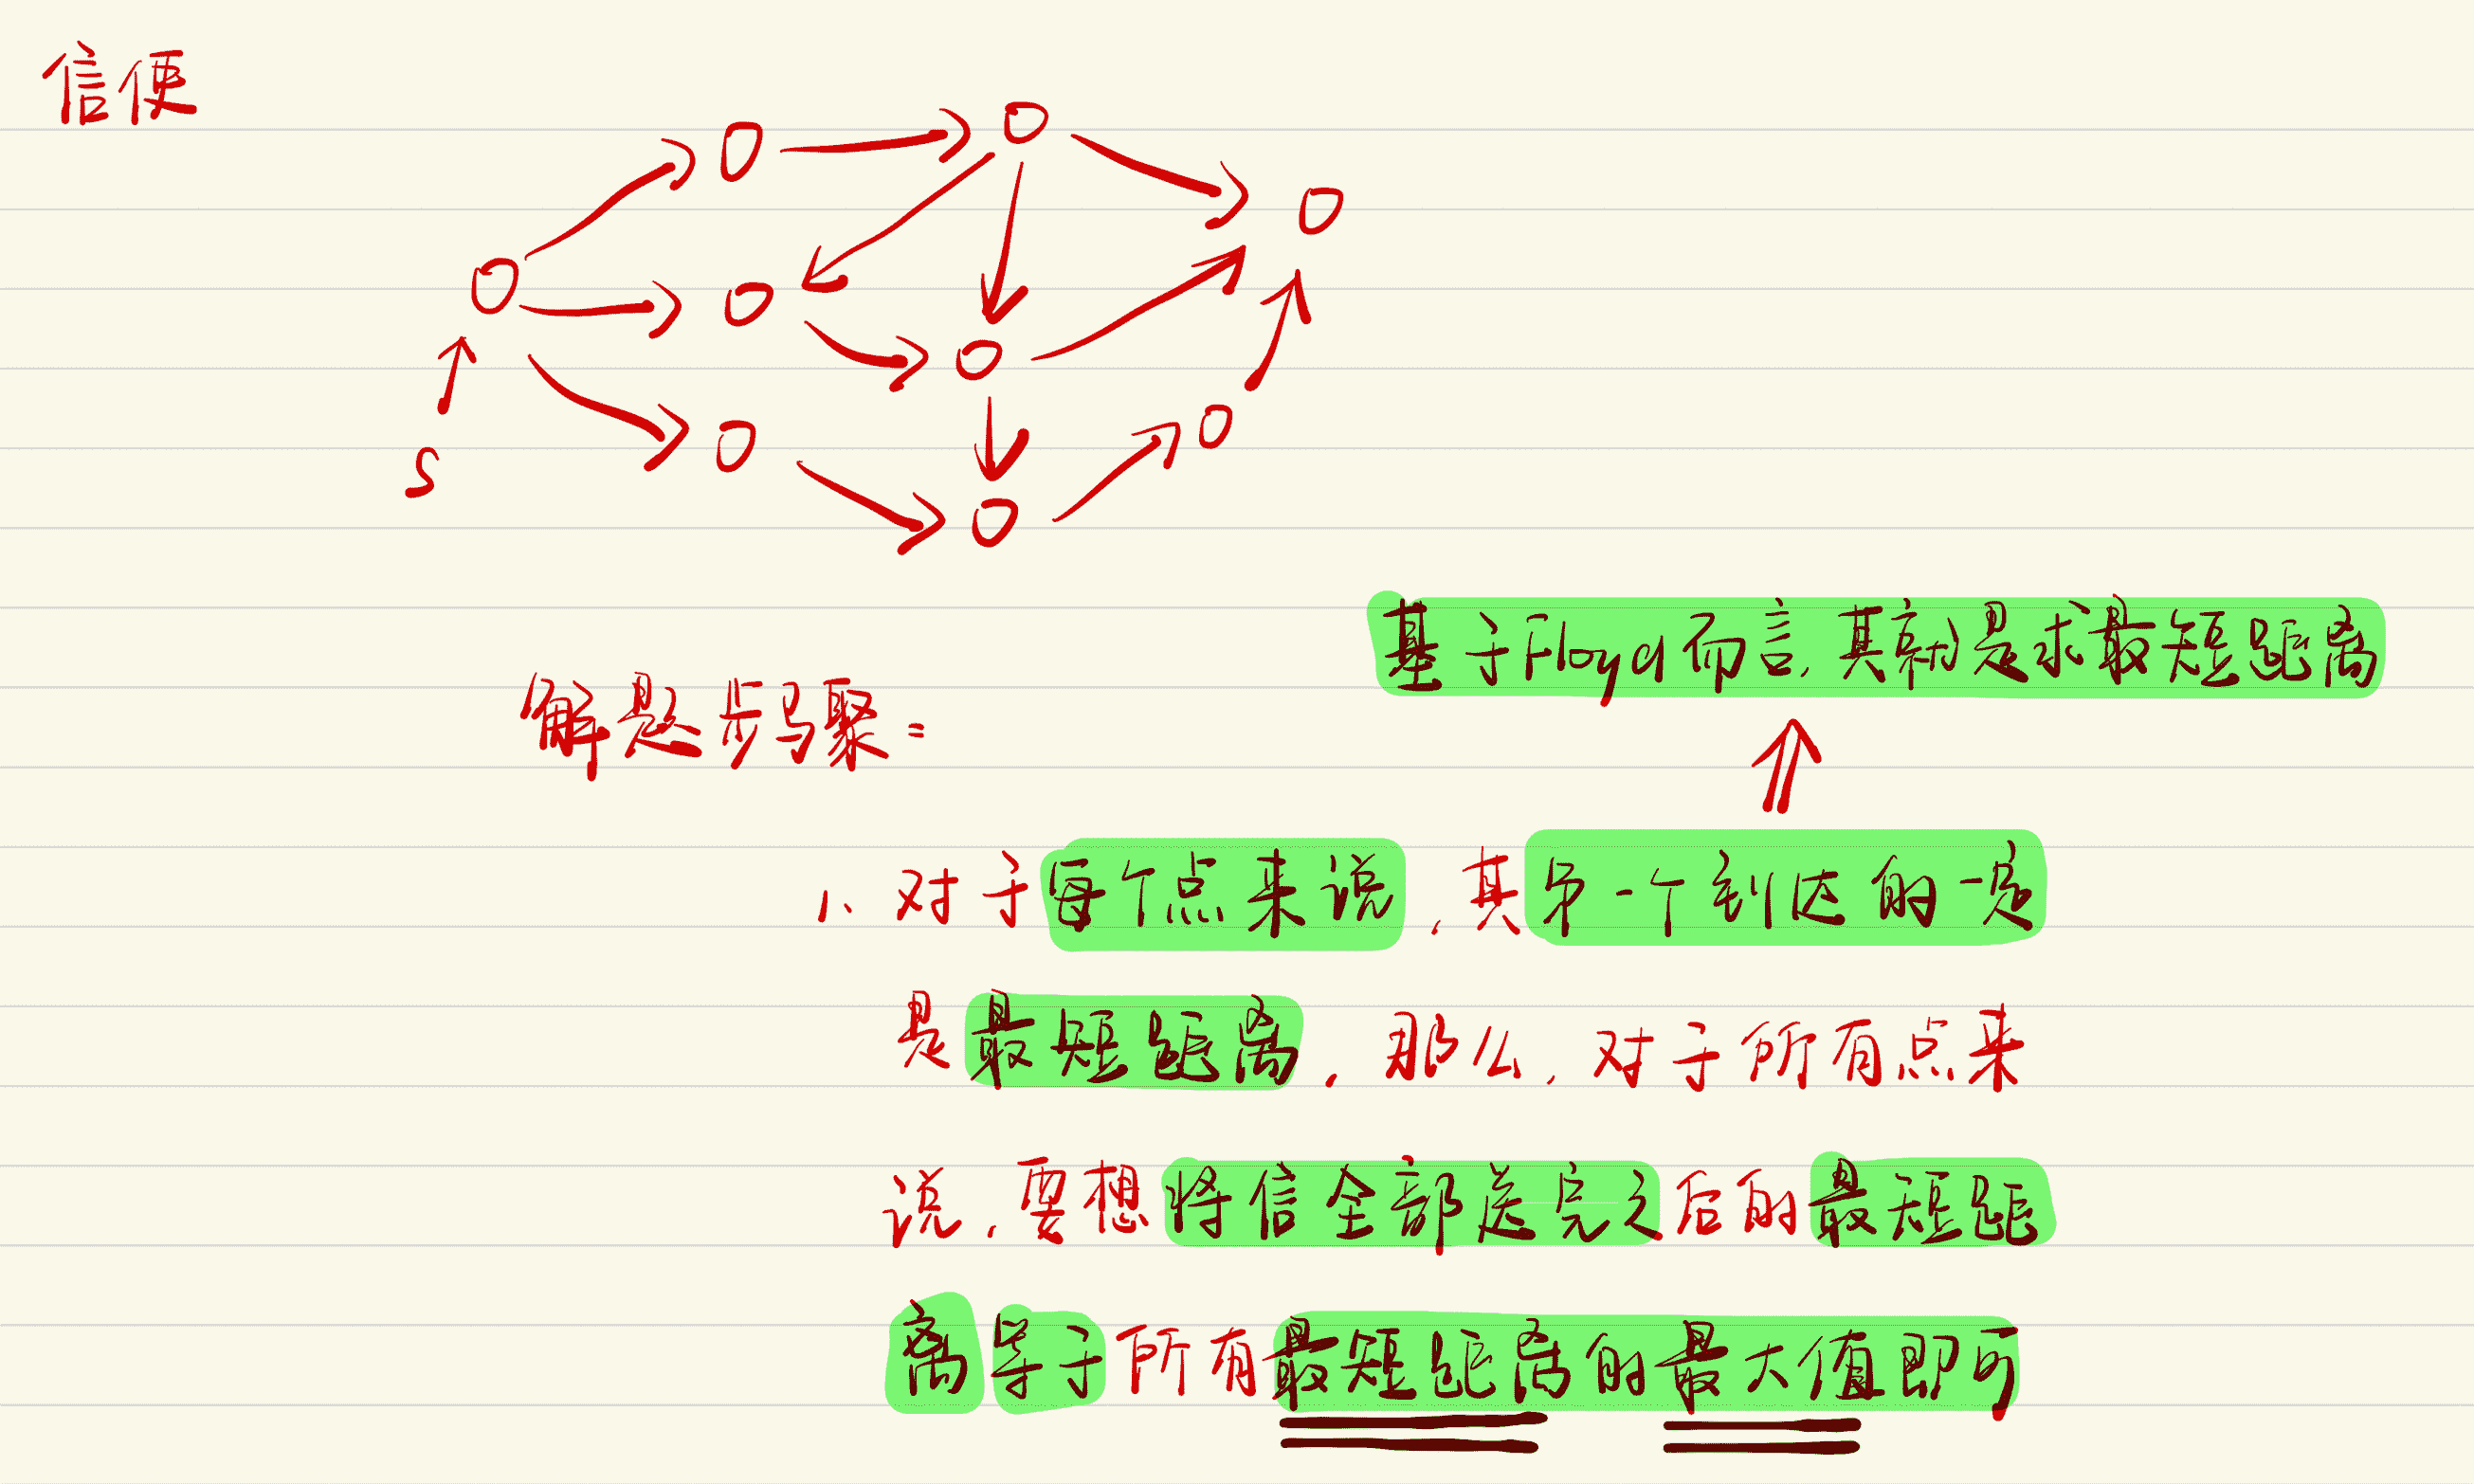 信使
S
基于Floyd而言,其就是求最短距离
解题步骤:
1、对于每个点来说,其第一个到达的一定
是最短距离,那么,对于所有点来
说,要想将信全部送完之后的最短距
离等于所有最短距离的最大值即可